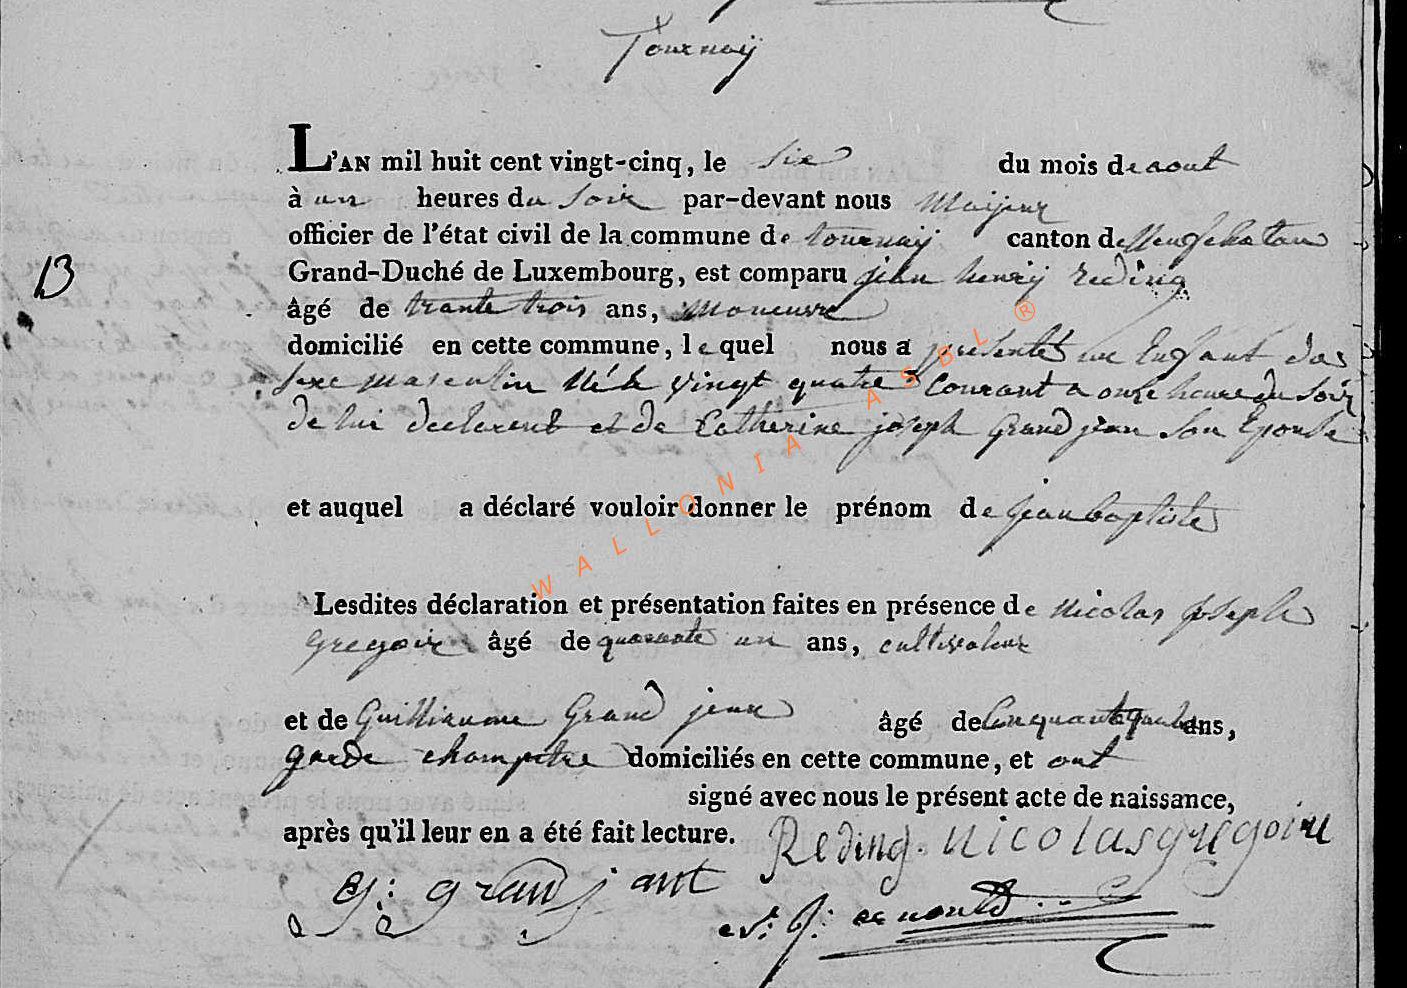 Tournaÿ
L'AN mil huit cent vingt-cinq, le six du mois de aout
à un heures du soir par-devant nous Maijeur
officier de l'état civil de la commune de tournaÿ canton de Neufchatau
13
Grand-Duché de Luxembourg, est comparu jean henrÿ reding
âgé de trante trois ans, maneuvre
domicilié en cette commune, lequel nous a presentet un Enfant das
sexe masculin né le vingt quatre Courant a onse heure du soir
de lui declerent et de Catherine joseph Grandjean Son Epouse
et auquel a déclaré vouloir donner le prénom de jean baptiste
Lesdites déclaration et présentation faites en présence de nicolas joseph
gregoir âgé de quarante un ans, cultivateur
et de Guilliaume Grand jean âgé de Cinquante quatre ans,
garde champetre domiciliés en cette commune, et ont
signé avec nous le présent acte de naissance,
après qu'il leur en a été fait lecture. Reding. nicolas gregoire
g: grand jant
WALLONIA ASBL ®